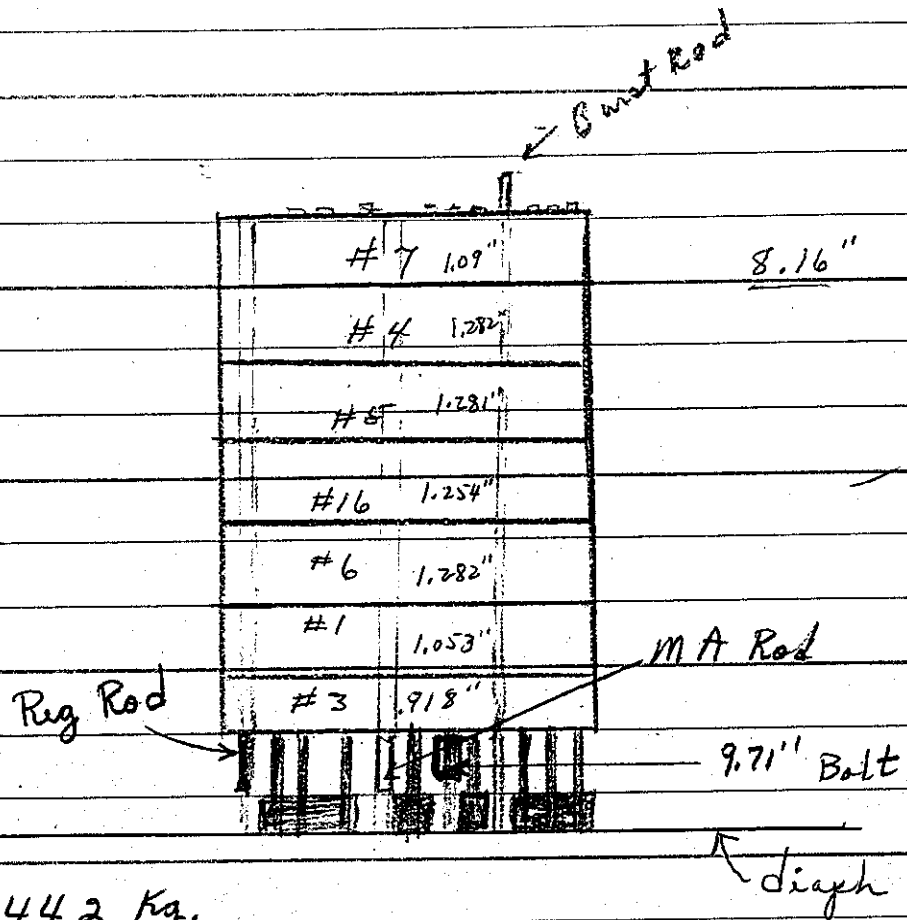 Burst Rod
# 7 1.09"
8.16"
# 4 1.282"
# 8 1.281"
#16 1.254"
# 6 1.282"
#1 1.053"
MA Rod
Reg Rod
# 3 .918"
9.71" Bolt
diaph
442 Kg.